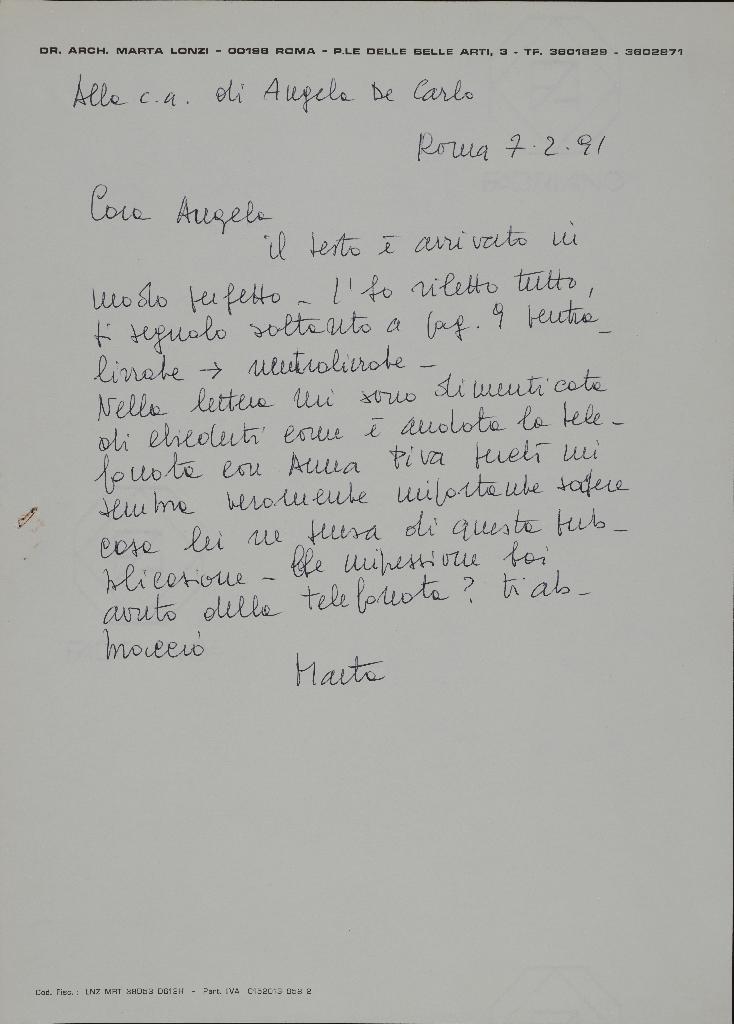 DR. ARCH. MARTA LONZI - 00198 ROMA - P.LE DELLE BELLE ARTI, 3 - TF. 3601829 - 3602871
Alla c.a. di Angela De Carlo
Roma 7.2.91
Cara Angela
il testo è arrivato in
modo perfetto - l'ho riletto tutto,
ti segnalo soltanto a pag. 9 tentra_
lizzate → neutralizzate -
Nella lettera mi sono dimenticata
di chiederti come è andata la tele-
fonata con Anna Piva perché mi
sembra veramente importante sapere
cosa lei ne pensa di questa pub_
blicazione - Che impressione hai
avuto della telefonata? ti ab_
braccio
Marta
Cod. Fisc.: LNZ MRT 38D53 D612H - Part. IVA